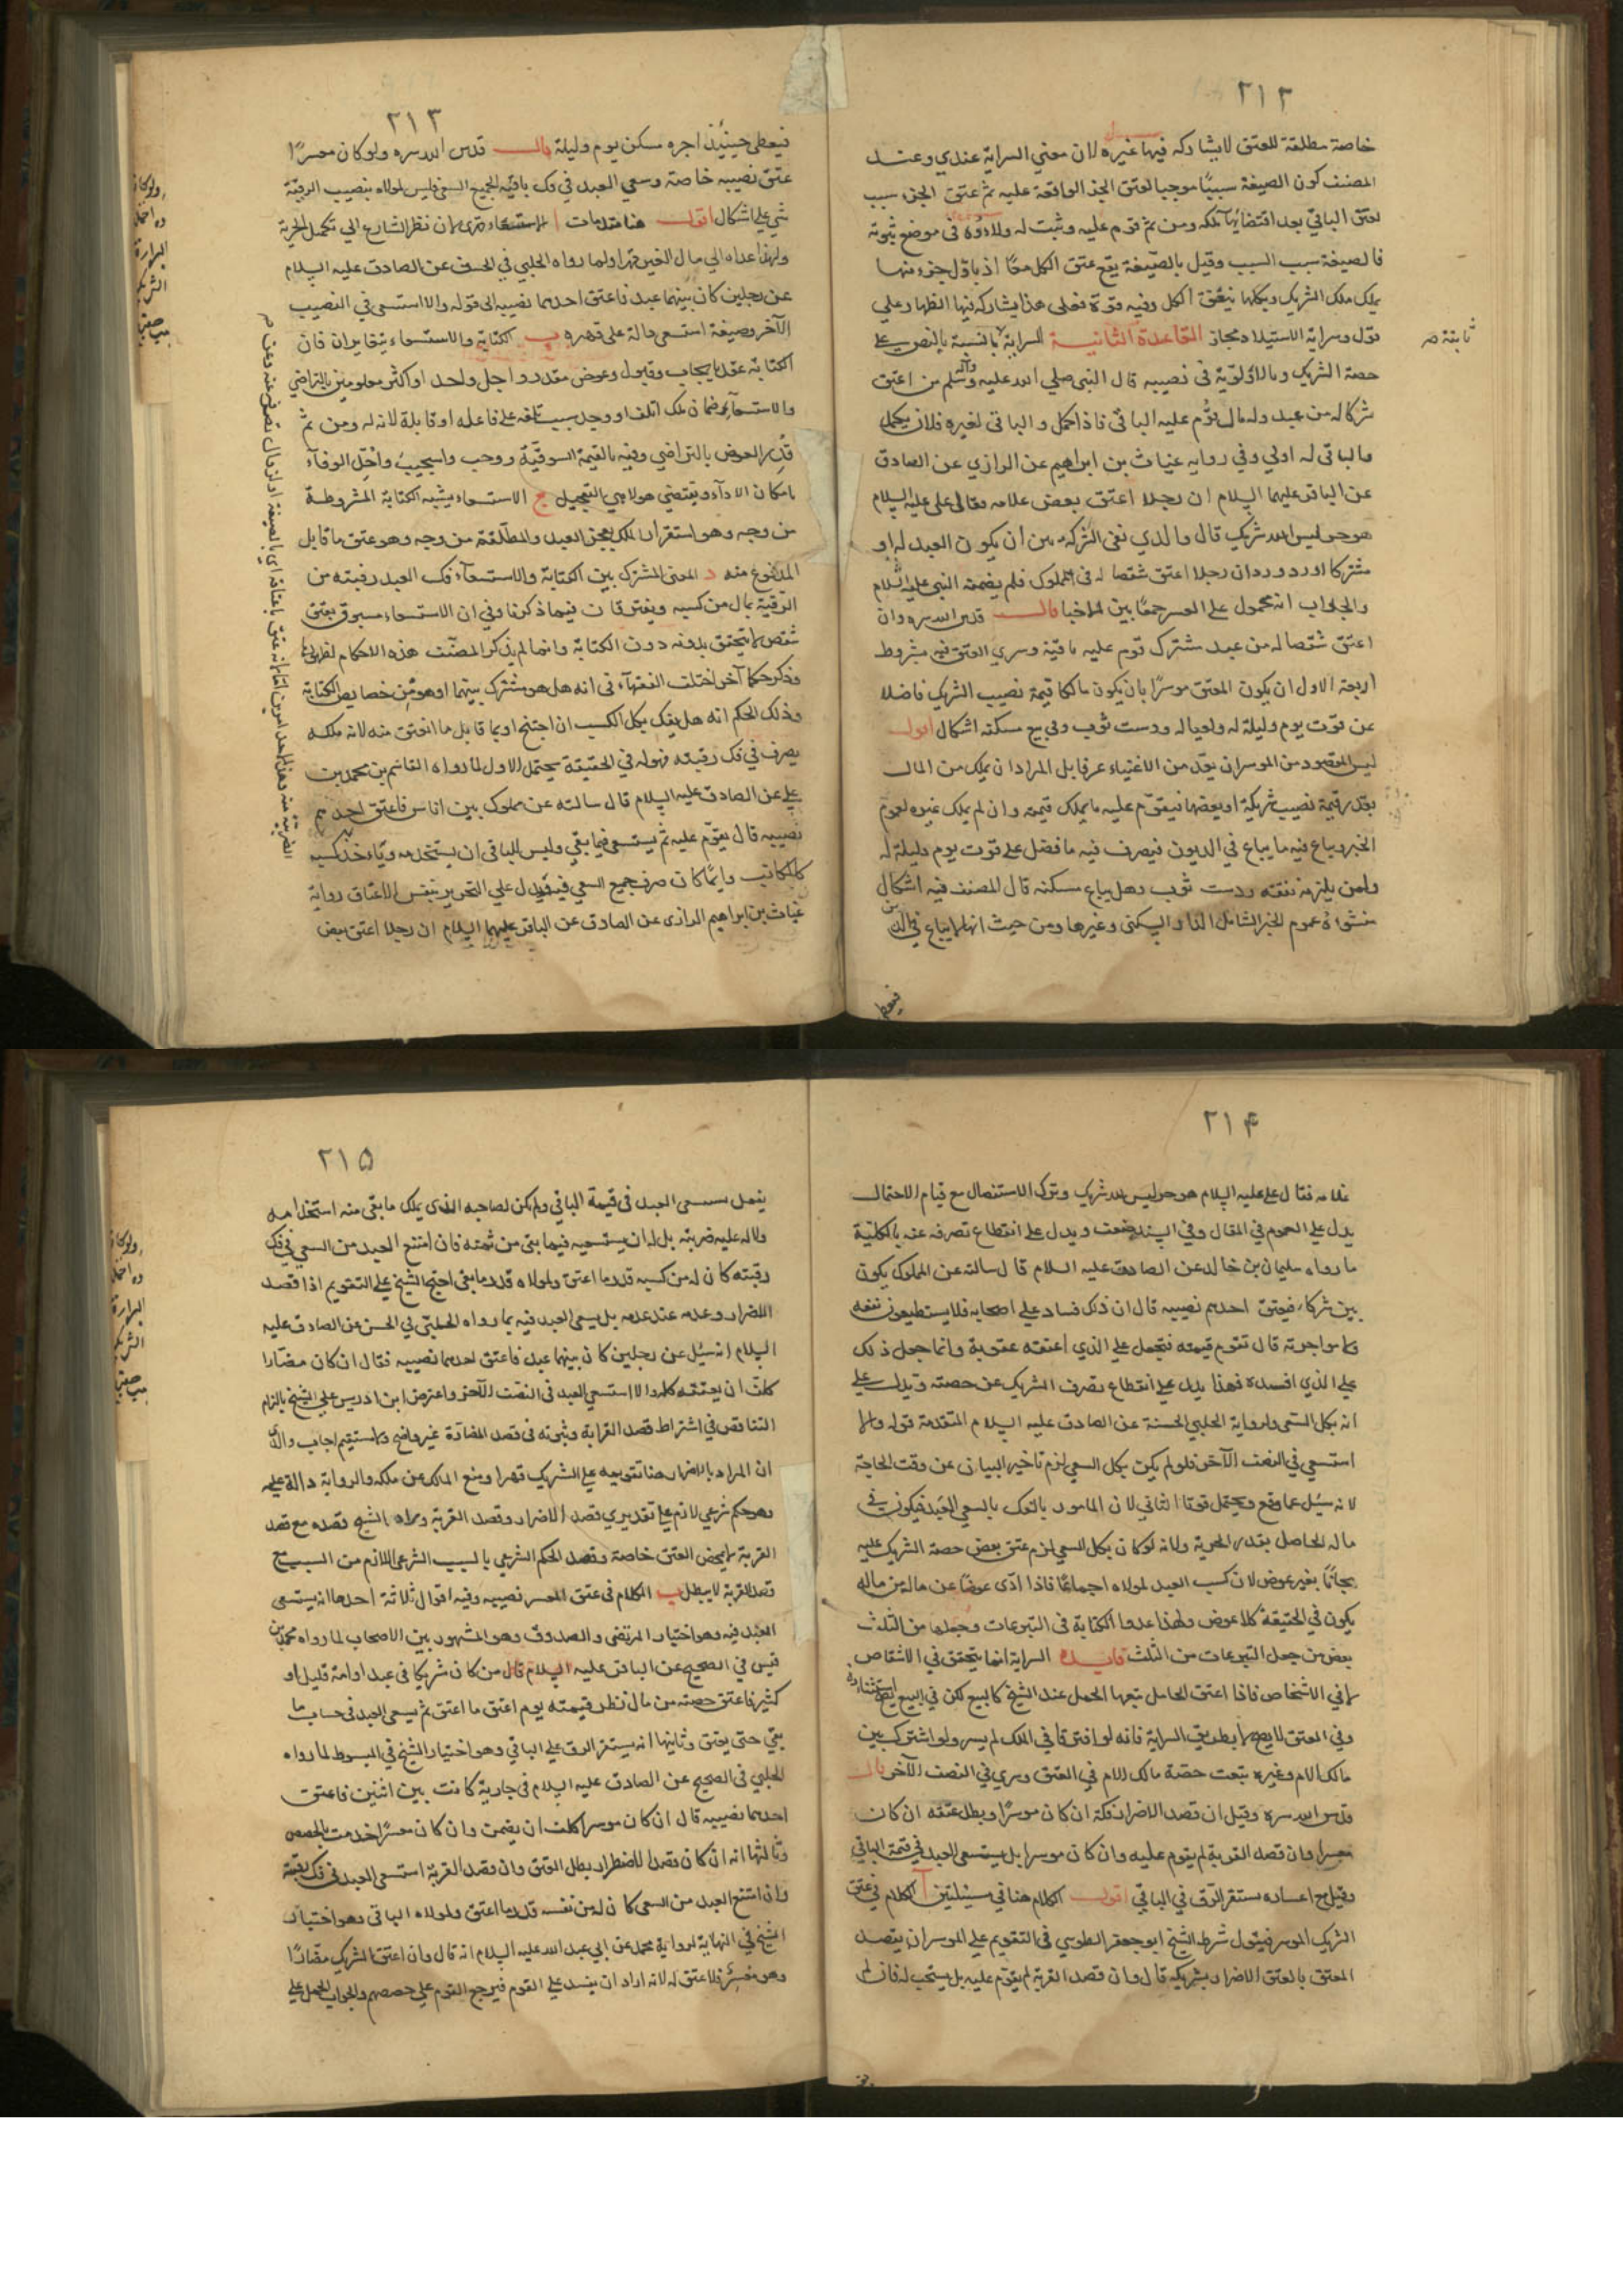 ٢١٢
خاصة مطلقة للعتق لا يشاركه فيها غيره لان معني السراية عندي وعند
المصنف كون الصيغة سببًا موجبا لعتق الجزء الواقعة عليه ثم عتق الجزء سبب
لعتق الباقي بعد اقتضائها ملكه ومن ثم قوم عليه وثبت له ولاؤه في موضع ثبوته
فالصيغة سبب السبب وقيل بالصيغة يقع عتق الكل معًا اذ باول جزء منها
يملك ملك الشريك وبكلها ينعتق الكل وفيه قوة فعلى هذا يشاركه فيها الظهار وعلي
قول وسراية الاستيلاد مجاز القاعدة الثانيـة السراية بالنسبة بالنص على
ثابتة صر
حصة الشريك وبالاولوية في نصيبه قال النبي صلي الله عليه وآله وسلم من اعتق
شركا له من عبد وله مال قوم عليه الباقي فاذا كمل والباقي لغيره فلان يكمل
والباقي له اولي وفي رواية غياث بن ابراهيم عن الرازي عن الصادق
عن الباقر عليهما السلام ان رجلا اعتق بعض غلامه فقال علي عليه السلام
هو حر ليس لله شريك قال والدي نفي الشركة بين ان يكون العبد له او
مشتركا اورد ورد ان رجلا اعتق شقصا له في مملوك فلم يضمنه النبي عليه السلام
والجواب انه محمول على المعسر جمعًا بين الاخبار قالـــ قدس الله سره وان
اعتق شقصا له من عبد مشترك قوم عليه باقيه وسري العتق فيه بشروط
اربعة الاول ان يكون المعتق موسرًا بان يكون مالكا قيمة نصيب الشريك فاضلا
عن قوت يوم وليلة له ولعياله ودست ثوب وفي بيع مسكنه اشكال اقولــ
ليس المقصود من الموسر ان يعد من الاغنياء عرفا بل المراد ان يملك من المال
بقدر قيمة نصيب شريكه او بعضها فيقوم عليه ما يملك قيمته وان لم يملك غيره لعموم
الخبر ويباع فيه ما يباع في الديون فيصرف فيه ما فضل على قوت يوم وليلة له
ولمن يلزمه نفقته ودست ثوب وهل يباع مسكنه قال المصنف فيه اشكال
منشؤه عموم الخبر الشامل للدار والسكنى وغيرها ومن حيث انها لا يباع في الدين
فيعطى
٢١٣
فيعطى حينئذ اجرة مسكن يوم وليلة قالـــ قدس الله سره ولو كان معسرًا
عتق نصيبه خاصة وسعي العبد في فك باقيه لجميع السعي فليس لمولاه بنصيب الرقية
شي علي اشكال اقولــ هنا مقدمات ا الاستسعاء قهري لان نظر الشارع الي تكميل الحرية
ولهذا عداه الي مال الغير قهرا ولما رواه الحلبي في الحسن عن الصادق عليه السلام
عن رجلين كان بينهما عبد فاعتق احدهما نصيبه الى قوله والا استسعي في النصيب
الآخر وصيغة استسعي دالة على قهره ب الكتابة والاستسعاء يتغايران فان
الكتابة عقد بايجاب وقبول وعوض مقدر واجل واحد او اكثر معلومين بالتراضي
والاستسعاء ضمان ملك اتلف او وجد سبب تلفه على فاعله او قابله لانه له ومن ثم
قدر العوض بالتراضي وفيه بالقيمة السوقية ووجب واستجيب واجل الوفاء
بامكان الاداء ويقتضي هو لا هي التعجيل ج الاستسعاء يشبه الكتابة المشروطة
من وجه وهو استقرار الملك بعجز العبد والمطلقة من وجه وهو عتق ما قابل
المدفوع منه د المعنى المشترك بين الكتابة والاستسعاء فك العبد رقبته من
الرقية بمال من كسبه ويفترقان فيما ذكرنا وفي ان الاستسعاء مسبوق بعتق
شقص لا يتحقق بدونه دون الكتابة وانما لم يذكر المصنف هذه الاحكام لظهورها
وذكر حكما آخر اختلف الفقهاء في انه هل هو مشترك بينهما او هو من خصايص الكتابة
وذلك الحكم انه هل يفك بكل الكسب ان احتيج او بما قابل ما انعتق منه لانه ملكه
يصرف في فك رقبته فهو له في الحقيقة يحتمل الاول لما رواه القاسم بن محمد بن
علي عن الصادق عليه السلام قال سالته عن مملوك بين اناس فاعتق احدهم
نصيبه قال يقوم عليه ثم يستسعى فيما بقي وليس للباقي ان يستخدمه وياخذ كسبه
كالمكاتب وايما كان صرف جميع السعي فيه ويدل علي التحرير بنفس الاعتاق رواية
غياث بن ابراهيم الرازى عن الصادق عن الباقر عليهما السلام ان رجلا اعتق بعض
٢١۴
غلامه فقال علي عليه السلام هو حر ليس لله شريك وترك الاستفصال مع قيام الاحتمال
يدل علي العموم في المقال وفي السند ضعف ويدل على انقطاع تصرفه عنه بالكلية
ما رواه سليمان بن خالد عن الصادق عليه السلام قال سالته عن المملوك يكون
بين شركاء فيعتق احدهم نصيبه قال ان ذلك فساد علي اصحابه فلا يستطيعون نفعه
ولا مواجرته قال تقوم قيمته فتجعل علي الذي اعتقه عقوبة وانما جعل ذلك
علي الذي افسده فهذا يدل علي انقطاع تصرف الشريك عن حصته ويدل على
انه بكل السعي ولرواية الحلبي الحسنة عن الصادق عليه السلام المتقدمة قوله والا
استسعي في النصف الآخر فلو لم يكن بكل السعي لزم تاخير البيان عن وقت الحاجة
لانه سئل عما وقع ويحتمل قويا الثاني لان المامور بالفك بالسعي العبد فيكون في
ماله الحاصل بقدر الحرية ولانه لو كان بكل السعي لزم عتق بعض حصة الشريك عليه
مجانًا بغير عوض لان كسب العبد لمولاه اجماعًا فاذا ادى عوضا عن ماله من ماله
يكون في الحقيقة كلا عوض ولهذا عدوا الكتابة في التبرعات وجعلها من الثلث
بعض من جعل التبرعات من الثلث فايـده السراية انما يتحقق في الاشقاص
لا في الاشخاص فاذا اعتق الحامل تبعها الحمل عند الشيخ كالبيع لكن في البيع يصح استثناؤه
وفي العتق لا يصح لا بطريق السراية فانه لو افترقا في الملك لم يسر ولو اشترك بين
مالك الام وغيره تبعت حصة مالك الام في العتق وسري في النصف الآخر قالــ
قدس الله سره وقيل ان قصد الاضرار فكه ان كان موسرًا وبطل عتقه ان كان
معسرا وان قصد القربة لم يقوم عليه وان كان موسرا بل يستسعى العبد في قيمة الباقي
وقيل مع اعساره يستقر الرق في الباقي اقولــ الكلام هنا في مسئلتين آ الكلام في عتق
الشريك الموسر فيقول شرط الشيخ ابو جعفر الطوسي في التقويم علي الموسر ان يقصد
المعتق بالعتق الاضرار بشريكه قال وان قصد القربة لم يقوم عليه بل يستحب له فان لم
٢١۵
يفعل يستسعى العبد في قيمة الباقي ولم يكن لصاحبه الذي يملك ما بقي منه استخدامه
ولا له عليه ضريبة بل له ان يستسعيه فيما بقي من ثمنه فان امتنع العبد من السعي في فك
رقبته كان له من كسبه قدر ما اعتق ولمولاه قدر ما بقي احتج الشيخ علي التقويم اذا قصد
الاضرار وعدمه عند عدمه بل يسعى العبد فيه بما رواه الحلبي في الحسن عن الصادق عليه
السلام انه سئل عن رجلين كان بينهما عبد فاعتق احدهما نصيبه فقال ان كان مضارا
كلف ان يعتقه كله والا استسعي العبد في النصف الآخر واعترض ابن ادريس علي الشيخ بالزام
التناقض في اشتراط قصد القرابة وثبوته في قصد المضارة غير واضح ولا مستقيم اجاب والدي
ان المراد بالاضرار هنا تقويمه علي الشريك قهرا ومنع المالك عن ملكه والرواية دالة عليه
وهو حكم شرعي لازم علي تقديري قصد الاضرار وقصد القربة ومراد الشيخ قصده مع قصد
القربة لا بمحض العتق خاصة وقصد الحكم الشرعي بالسبب الشرعي اللازم من السبب مع
قصد القربة لا يبطل ب الكلام في عتق المعسر نصيبه وفيه اقوال ثلاثة احدها انه يستسعى
العبد فيه وهو اختيار المرتضى والصدوق وهو المشهور بين الاصحاب لما رواه محمد بن
قيس في الصحيح عن الباقر عليه السلام قال من كان شريكا في عبد او امة قليل او
كثير فاعتق حصته من مال نظر قيمته يوم اعتق ما اعتق ثم يسعى العبد في حساب ما
بقي حتى يعتق وثانيها انه يستقر الرق علي الباقي وهو اختيار الشيخ في المبسوط لما رواه
الحلبي في الصحيح عن الصادق عليه السلام في جارية كانت بين اثنين فاعتق
احدهما نصيبه قال ان كان موسرا كلف ان يضمن وان كان معسرًا خدمت بالحصص
وثالثها انه ان كان قصد الاضرار بطل العتق وان قصد القربة استسعى العبد في فك رقبته
وان امتنع العبد من السعي كان له من نفسه قدر ما اعتق ولمولاه الباقي وهو اختيار
الشيخ في النهاية لرواية محمد عن ابي عبد الله عليه السلام انه قال وان اعتق الشريك مضارًا
وهو معسر فلا عتق له لانه اراد ان يفسد علي القوم فيرجع القوم علي حصصهم والجواب الحمل علي